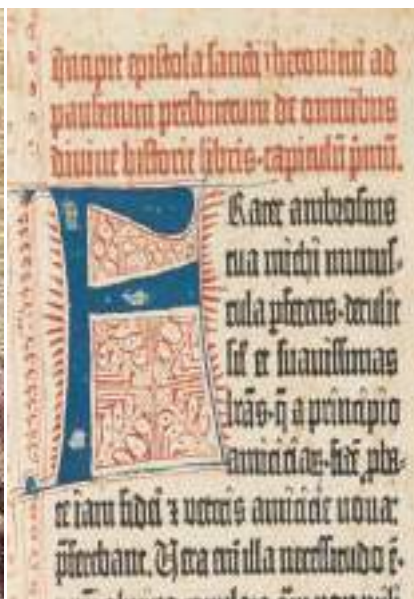 Incipit epistola sancti iheronimi ad
paulinum presbiterum de omnibus
divine historie libris · capitulū pmū.
FRater ambrosius
tua michi munus-
cula pferens · detulit
sil̄ et suavissimas
lr̄as · q̄ a principio
amiciciar̄ · fidē pba-
te iam fidei ⁊ veteris amicicie nova:
pferebant. Vera eni illa necessitudo ē ·